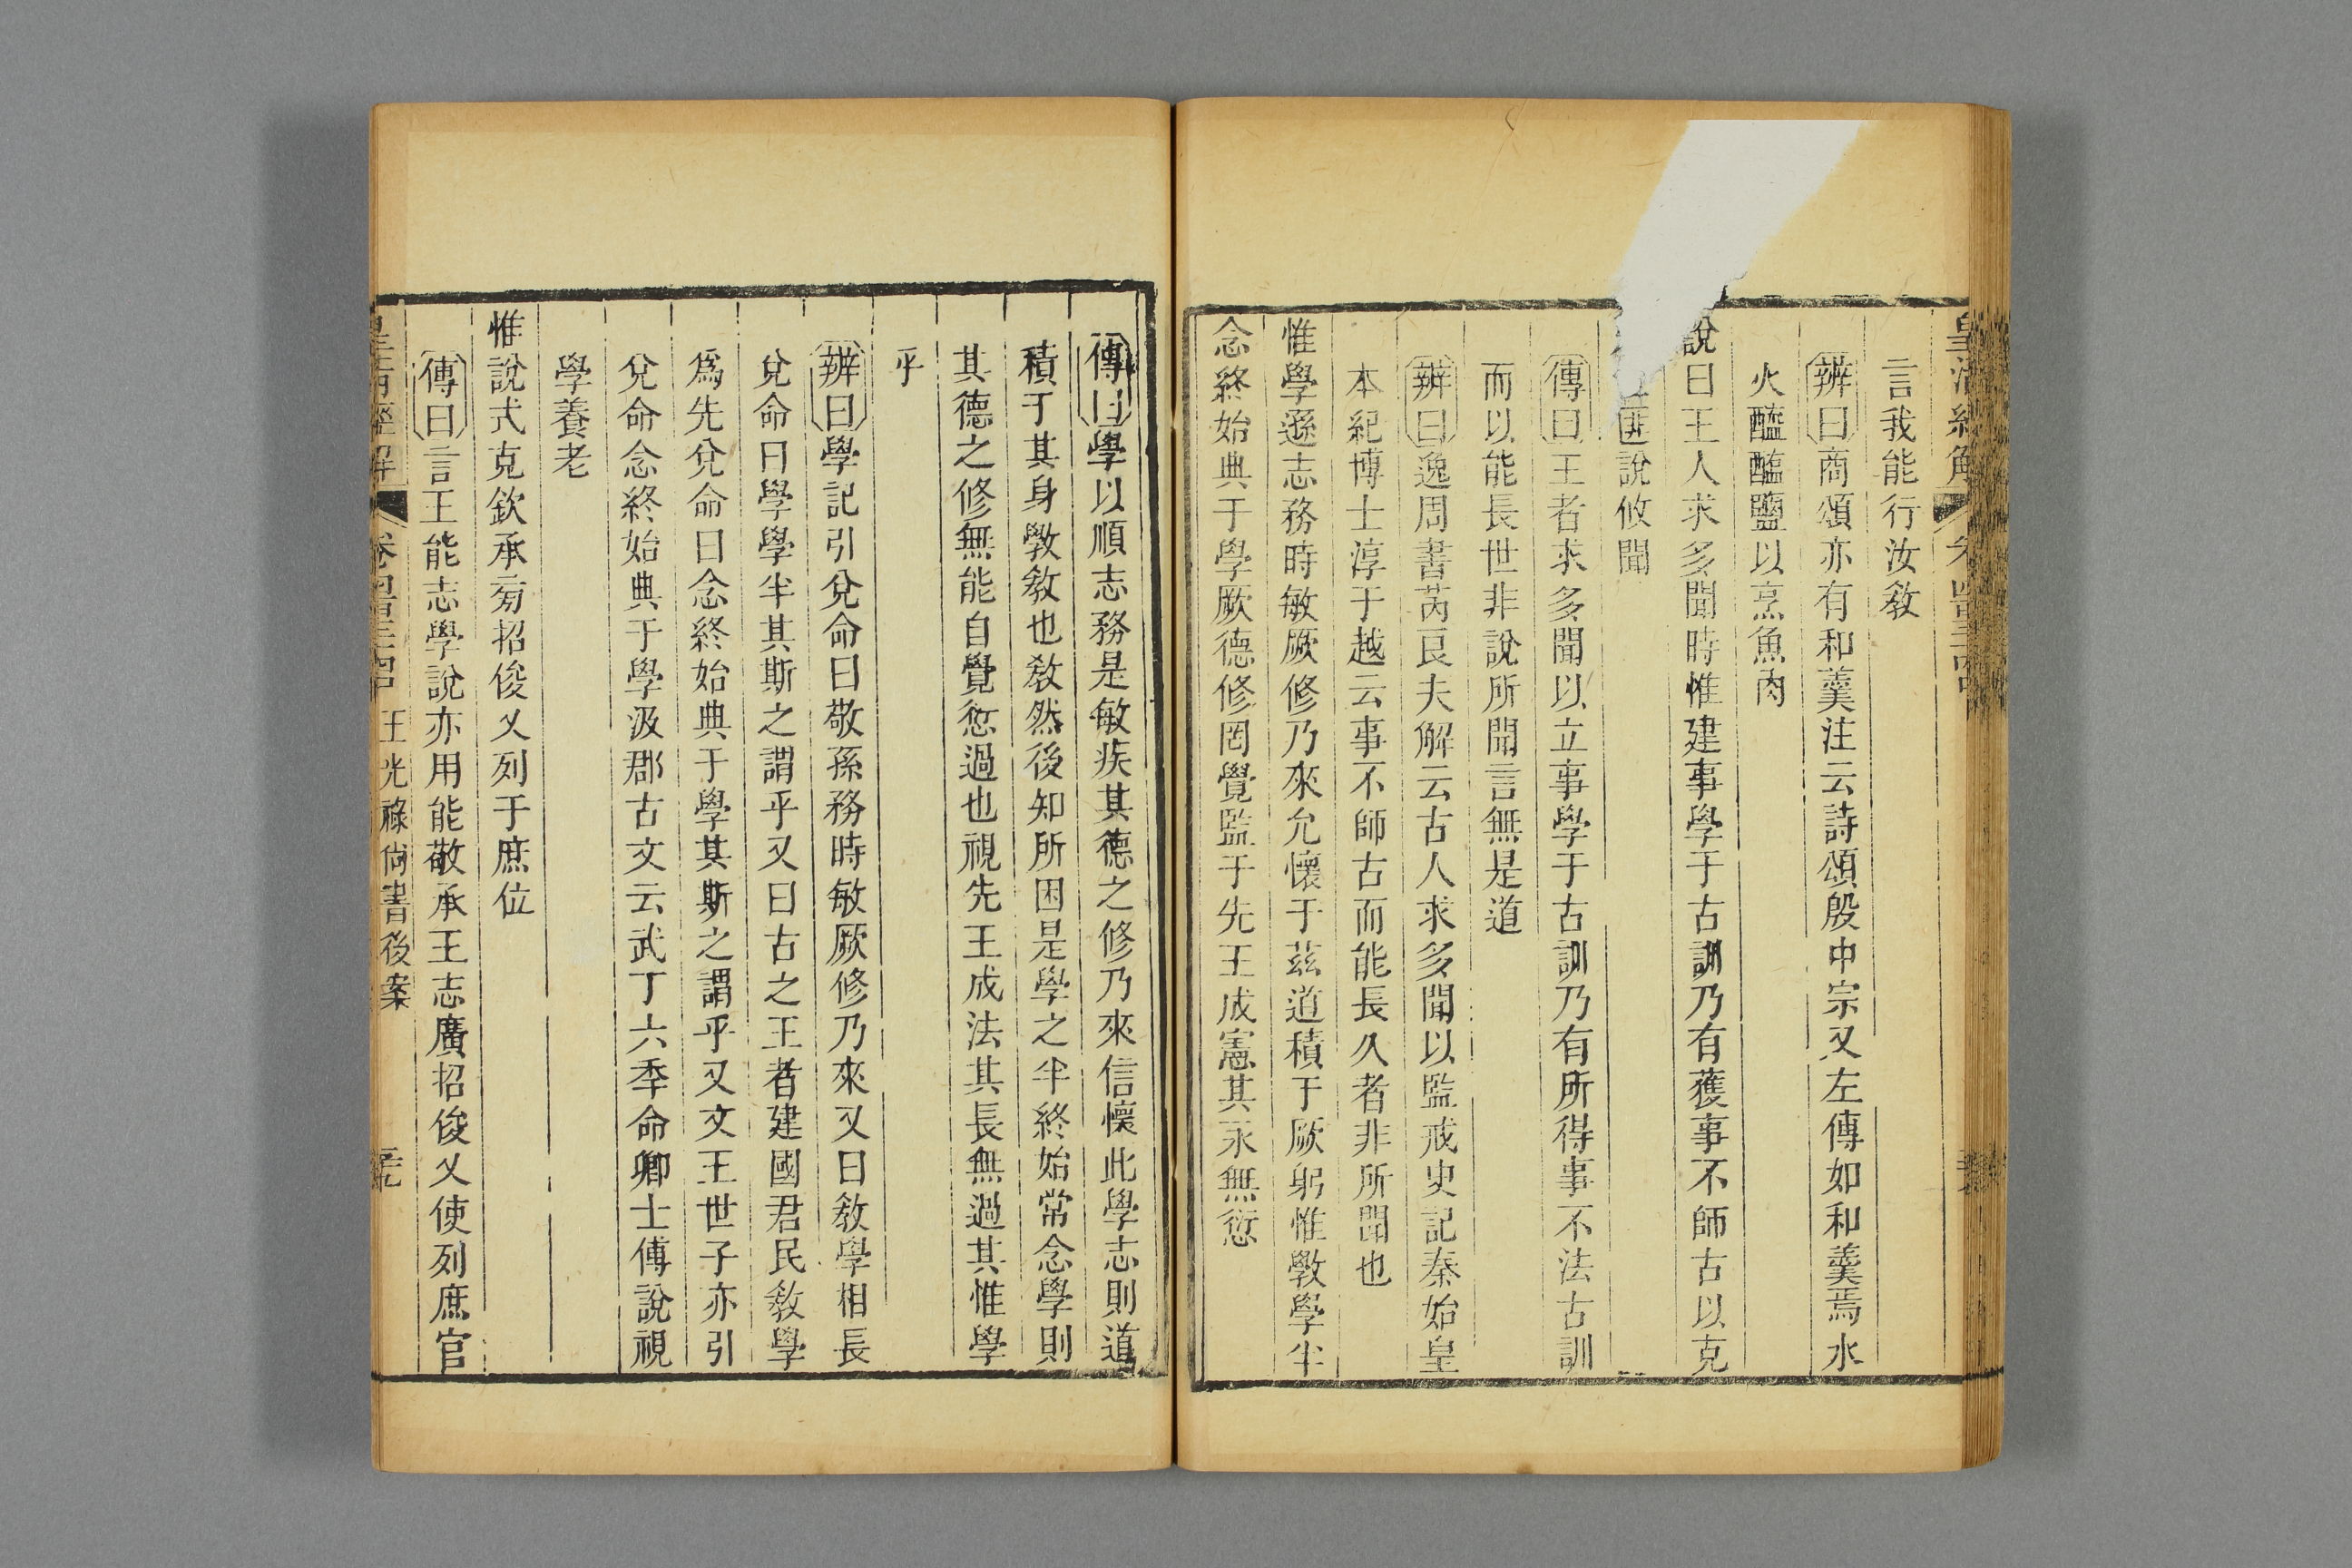 皇清經解
言我能行汝敎
辨曰商頌亦有和羹注云詩頌殷中宗又左傳如和羹焉水
火醯醢鹽以烹魚肉
說曰王人求多聞時惟建事學于古訓乃有獲事不師古以克
匪說攸聞
傳曰王者求多聞以立事學于古訓乃有所得事不法古訓
而以能長世非說所聞言無是道
辨曰逸周書芮良夫解云古人求多聞以監戒史記秦始皇
本紀博士淳于越云事不師古而能長久者非所聞也
惟學遜志務時敏厥修乃來允懷于茲道積于厥躬惟斆學半
念終始典于學厥德修罔覺監于先王成憲其永無愆
傳曰學以順志務是敏疾其德之修乃來信懷此學志則道
積于其身斆敎也敎然後知所困是學之半終始常念學則
其德之修無能自覺愆過也視先王成法其長無過其惟學
乎
辨曰學記引兌命曰敬孫務時敏厥修乃來又曰敎學相長
兌命曰學學半其斯之謂乎又曰古之王者建國君民敎學
爲先兌命曰念終始典于學其斯之謂乎又文王世子亦引
兌命念終始典于學汲郡古文云武丁六季命卿士傅說視
學養老
惟說式克欽承旁招俊乂列于庶位
傳曰言王能志學說亦用能敬承王志廣招俊乂使列庶官
皇清經解 卷四百三十四中 王光祿尙書後案